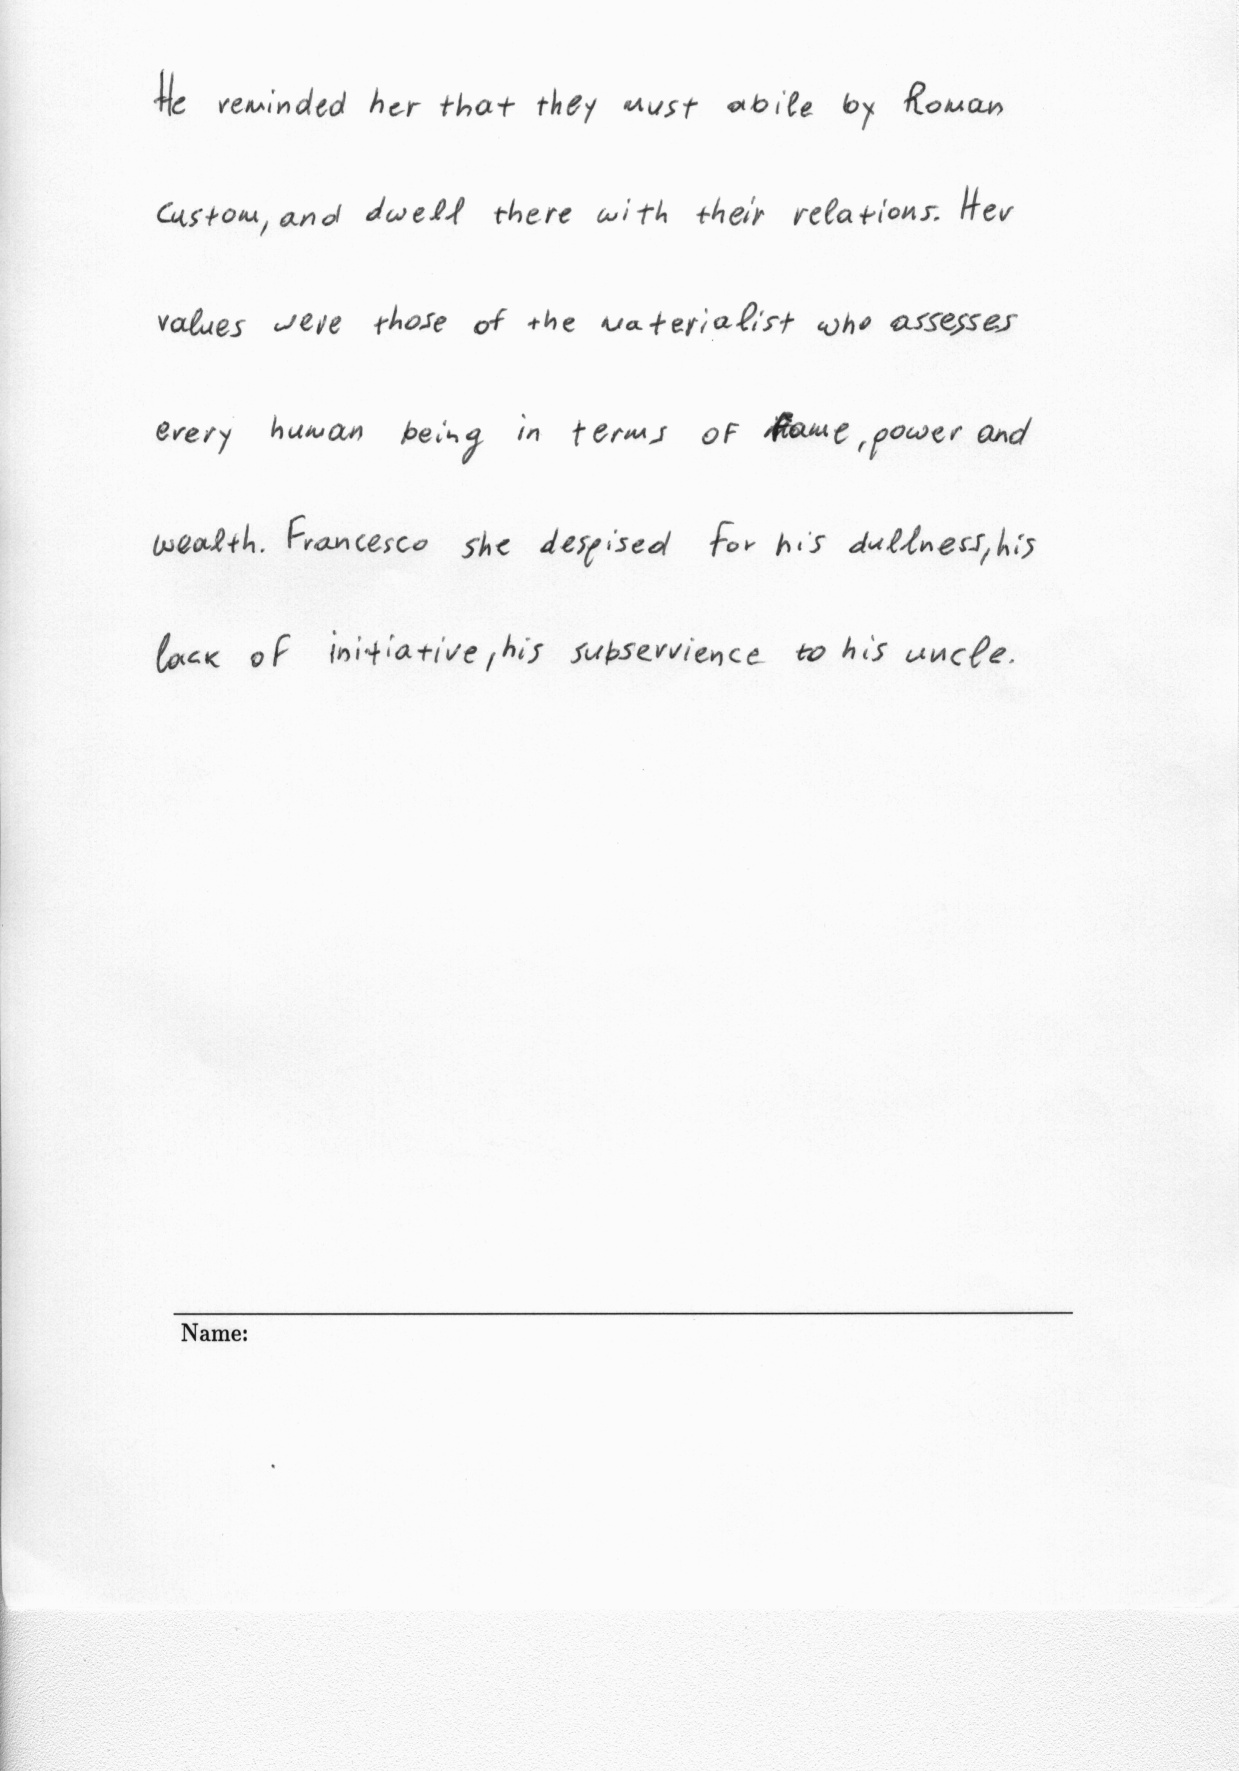 He reminded her that they must abile by Roman
custom, and dwell there with their relations. Her
values were those of the materialist who assesses
every human being in terms of fame, power and
wealth. Francesco she despised for his dullness, his
lack of initiative, his subservience to his uncle.
Name: